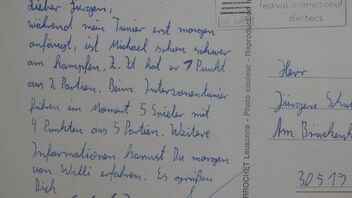 Lieber Jürgen,
während mein Turnier erst morgen
anfängt, ist Michael schon schwer
am kämpfen. Z. Zt hat er 1 Punkt
aus 2 Partien. Beim Interzonenturnier
führen im Moment 5 Spieler mit
4 Punkten aus 5 Partien. Weitere
Informationen kannst Du morgen
von Willi erfahren. Es grüßen
Dich
PERROCHET Lausanne - Photo couleur - Reproduction
festival international
d'échecs
Herr
Jürgen
Am
30519